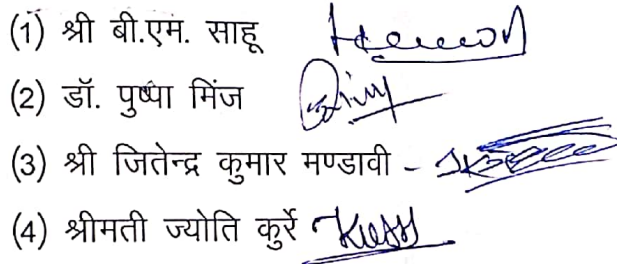 (1) श्री बी.एम. साहू
(2) डॉ. पुष्पा मिंज
(3) श्री जितेन्द्र कुमार मण्डावी -
(4) श्रीमती ज्योति कुर्रे